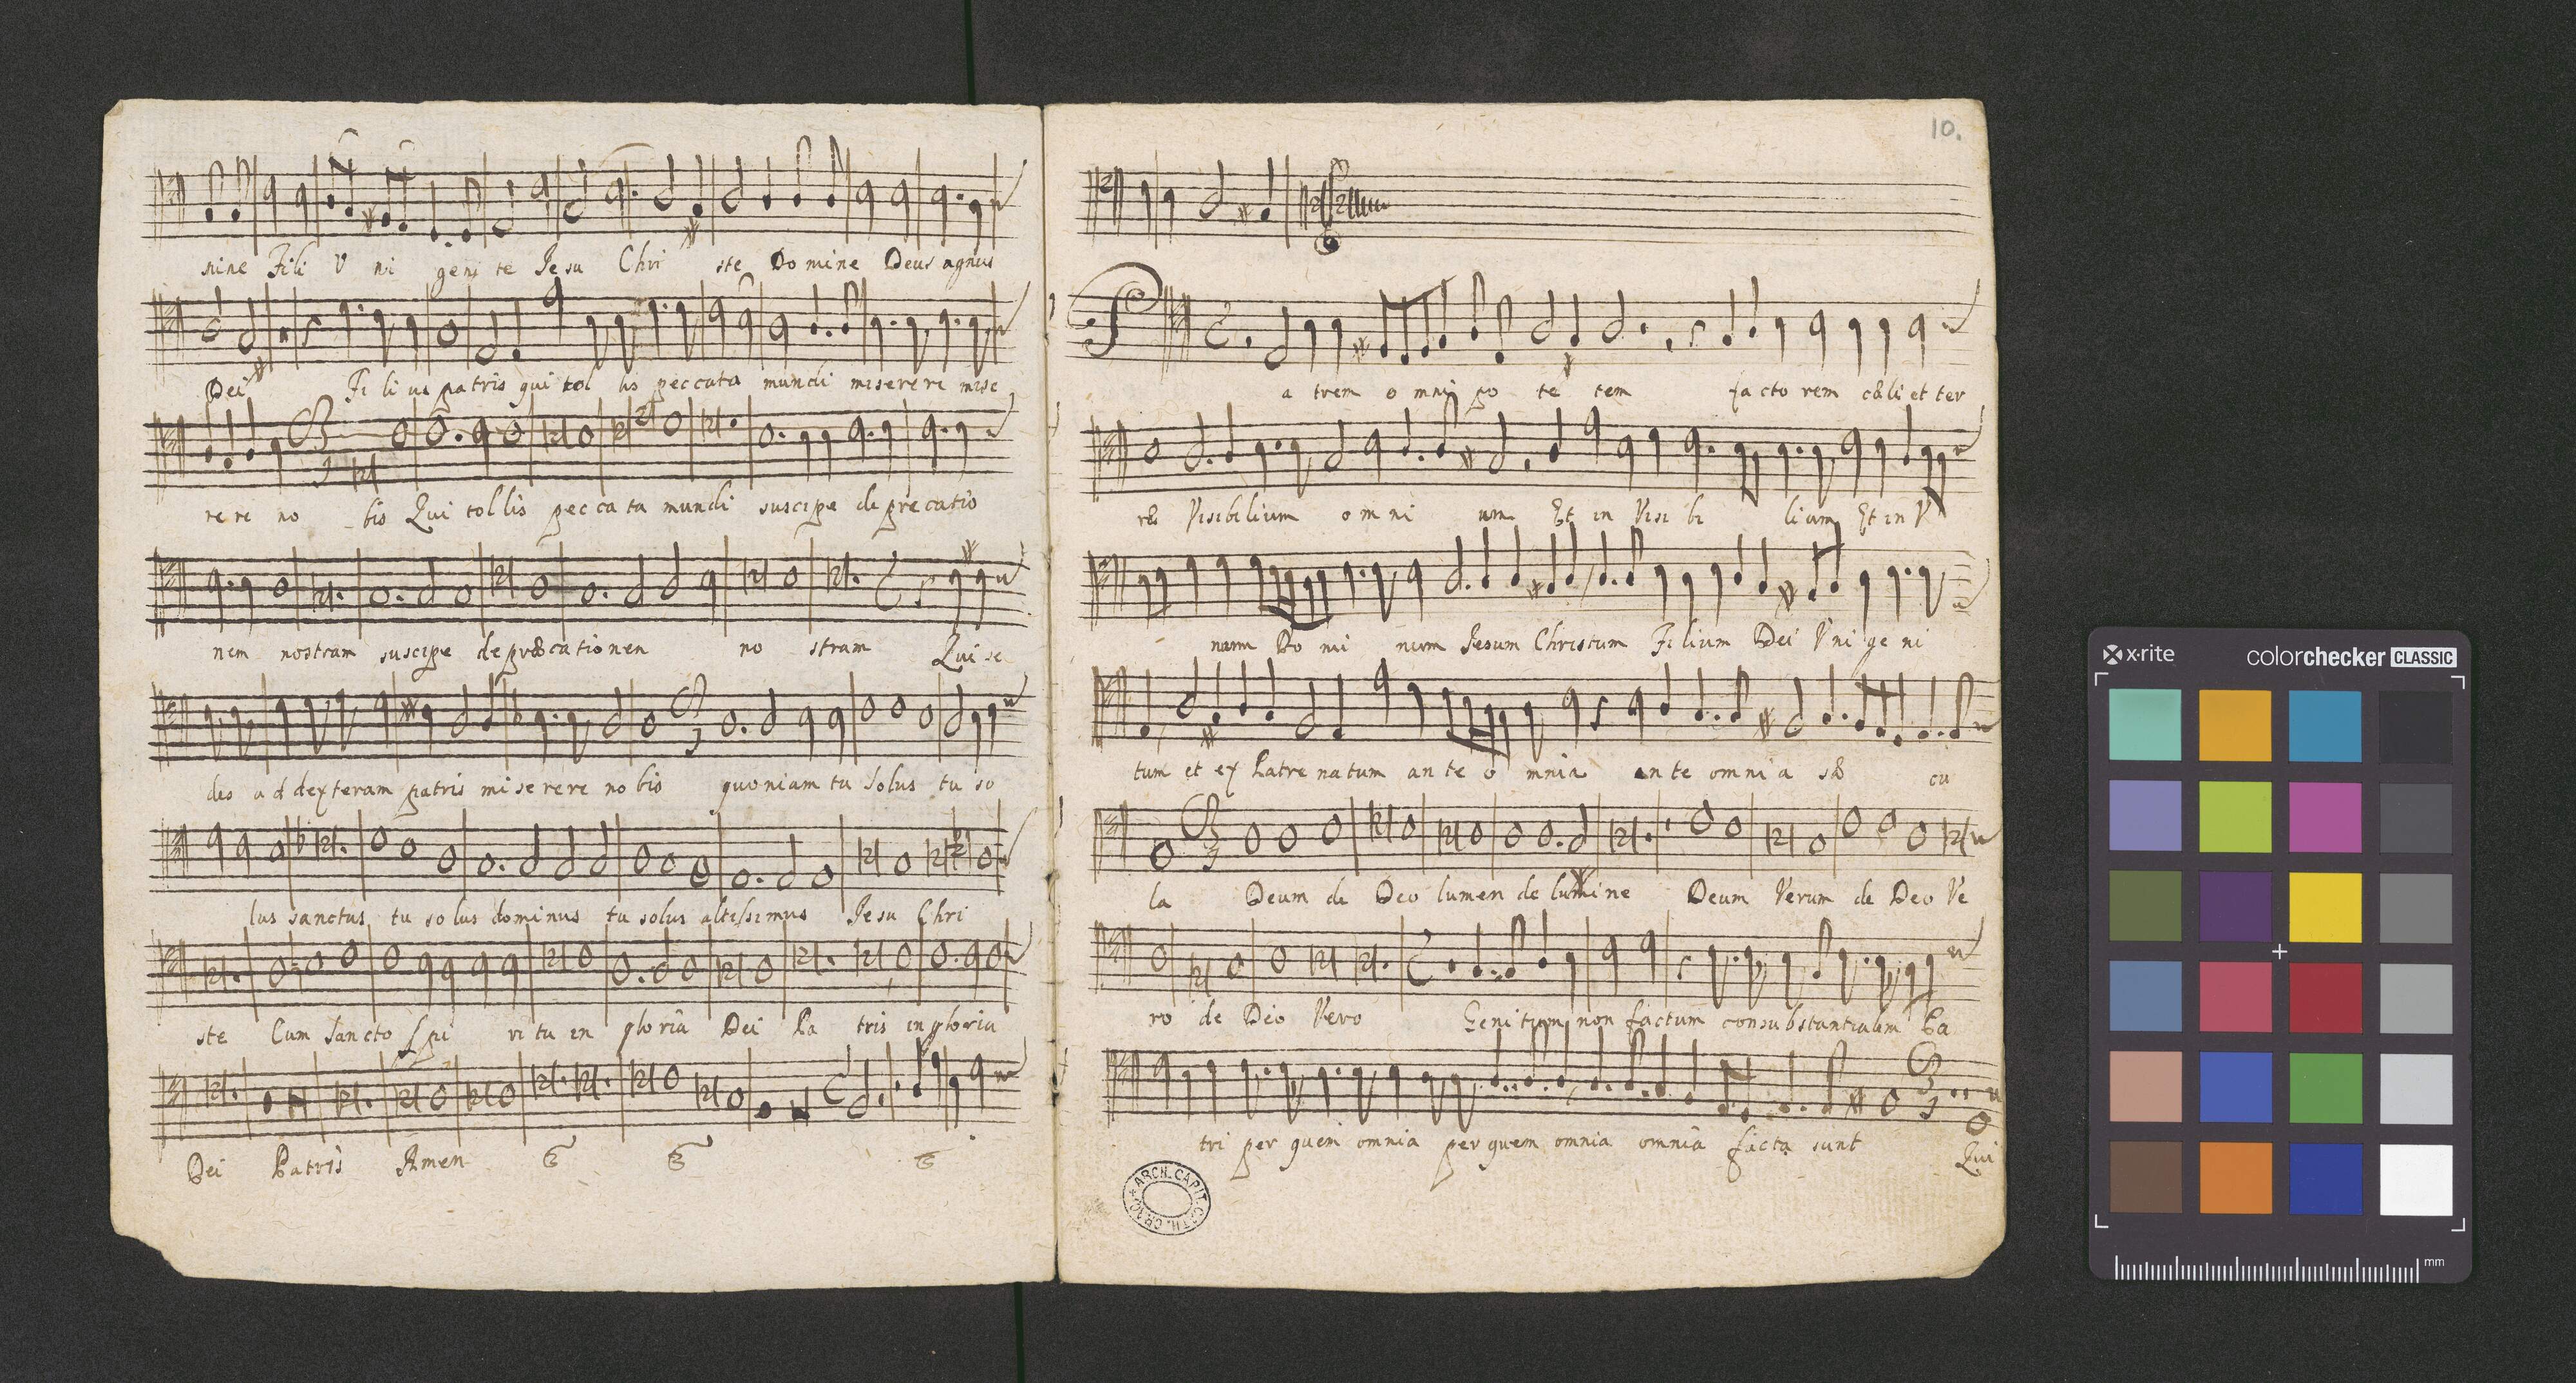 nine Fili V ni geni te Jesu Chri ste Do mine Deus agnus
Dei Fi li us patris qui tol lis peccata mundi misereri mise
re ri no bis Qui tol lis pec ca ta mundi suscipe di precatio
nem nostram suscipe de præcationen no stram Qui se
des ad dexteram patris mi se rere no bis quoniam tu solus tu so
lus sanctus tu so lus dominus tu solus altissimus Jesu Chri
ste Cum sancto Spi ri tu in gloria Dei Pa tris in gloria
Dei Patris Amen
10.
P
a trem o mni po te tem facto rem cæli et ter
ræ Visibilium o m ni um Et in Visi bi lium Et in V
num Do mi num Jesum Christum Filium Dei Vni ge ni
tum et ex Patre natum an te o mnia an te omni a sæ cu
la Deum di Deo lumen de lumine Deum Verum de Deo Ve
ro de Deo Vero Genitum non factum consubstantialem Pa
tri per quem omnia per quem omnia omnia facta sunt Qui
ARCH. CAPIT. CATH. CRAC.
x·rite
colorchecker CLASSIC
mm